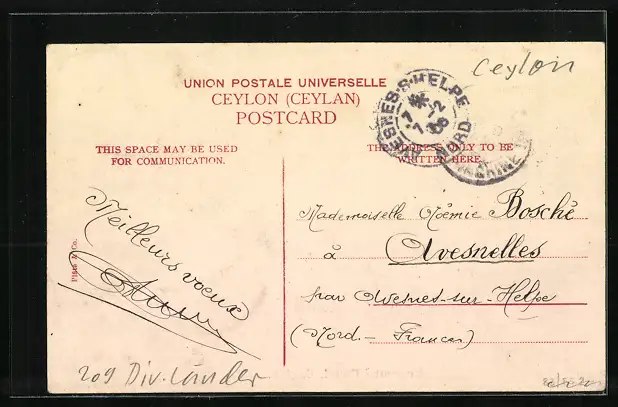 Ceylon
UNION POSTALE UNIVERSELLE
CEYLON (CEYLAN)
POSTCARD
AVESNES-S-HELPE
7 * 
7-2
06
NORD
THIS SPACE MAY BE USED
FOR COMMUNICATION.
THE ADDRESS ONLY TO BE
WRITTEN HERE.
Meilleurs voeux
Plâté & Co.
Mademoiselle Noémie Bosché
à Avesnelles
par Avesnes-sur-Helpe
(Nord.- France)
209 Div. Länder